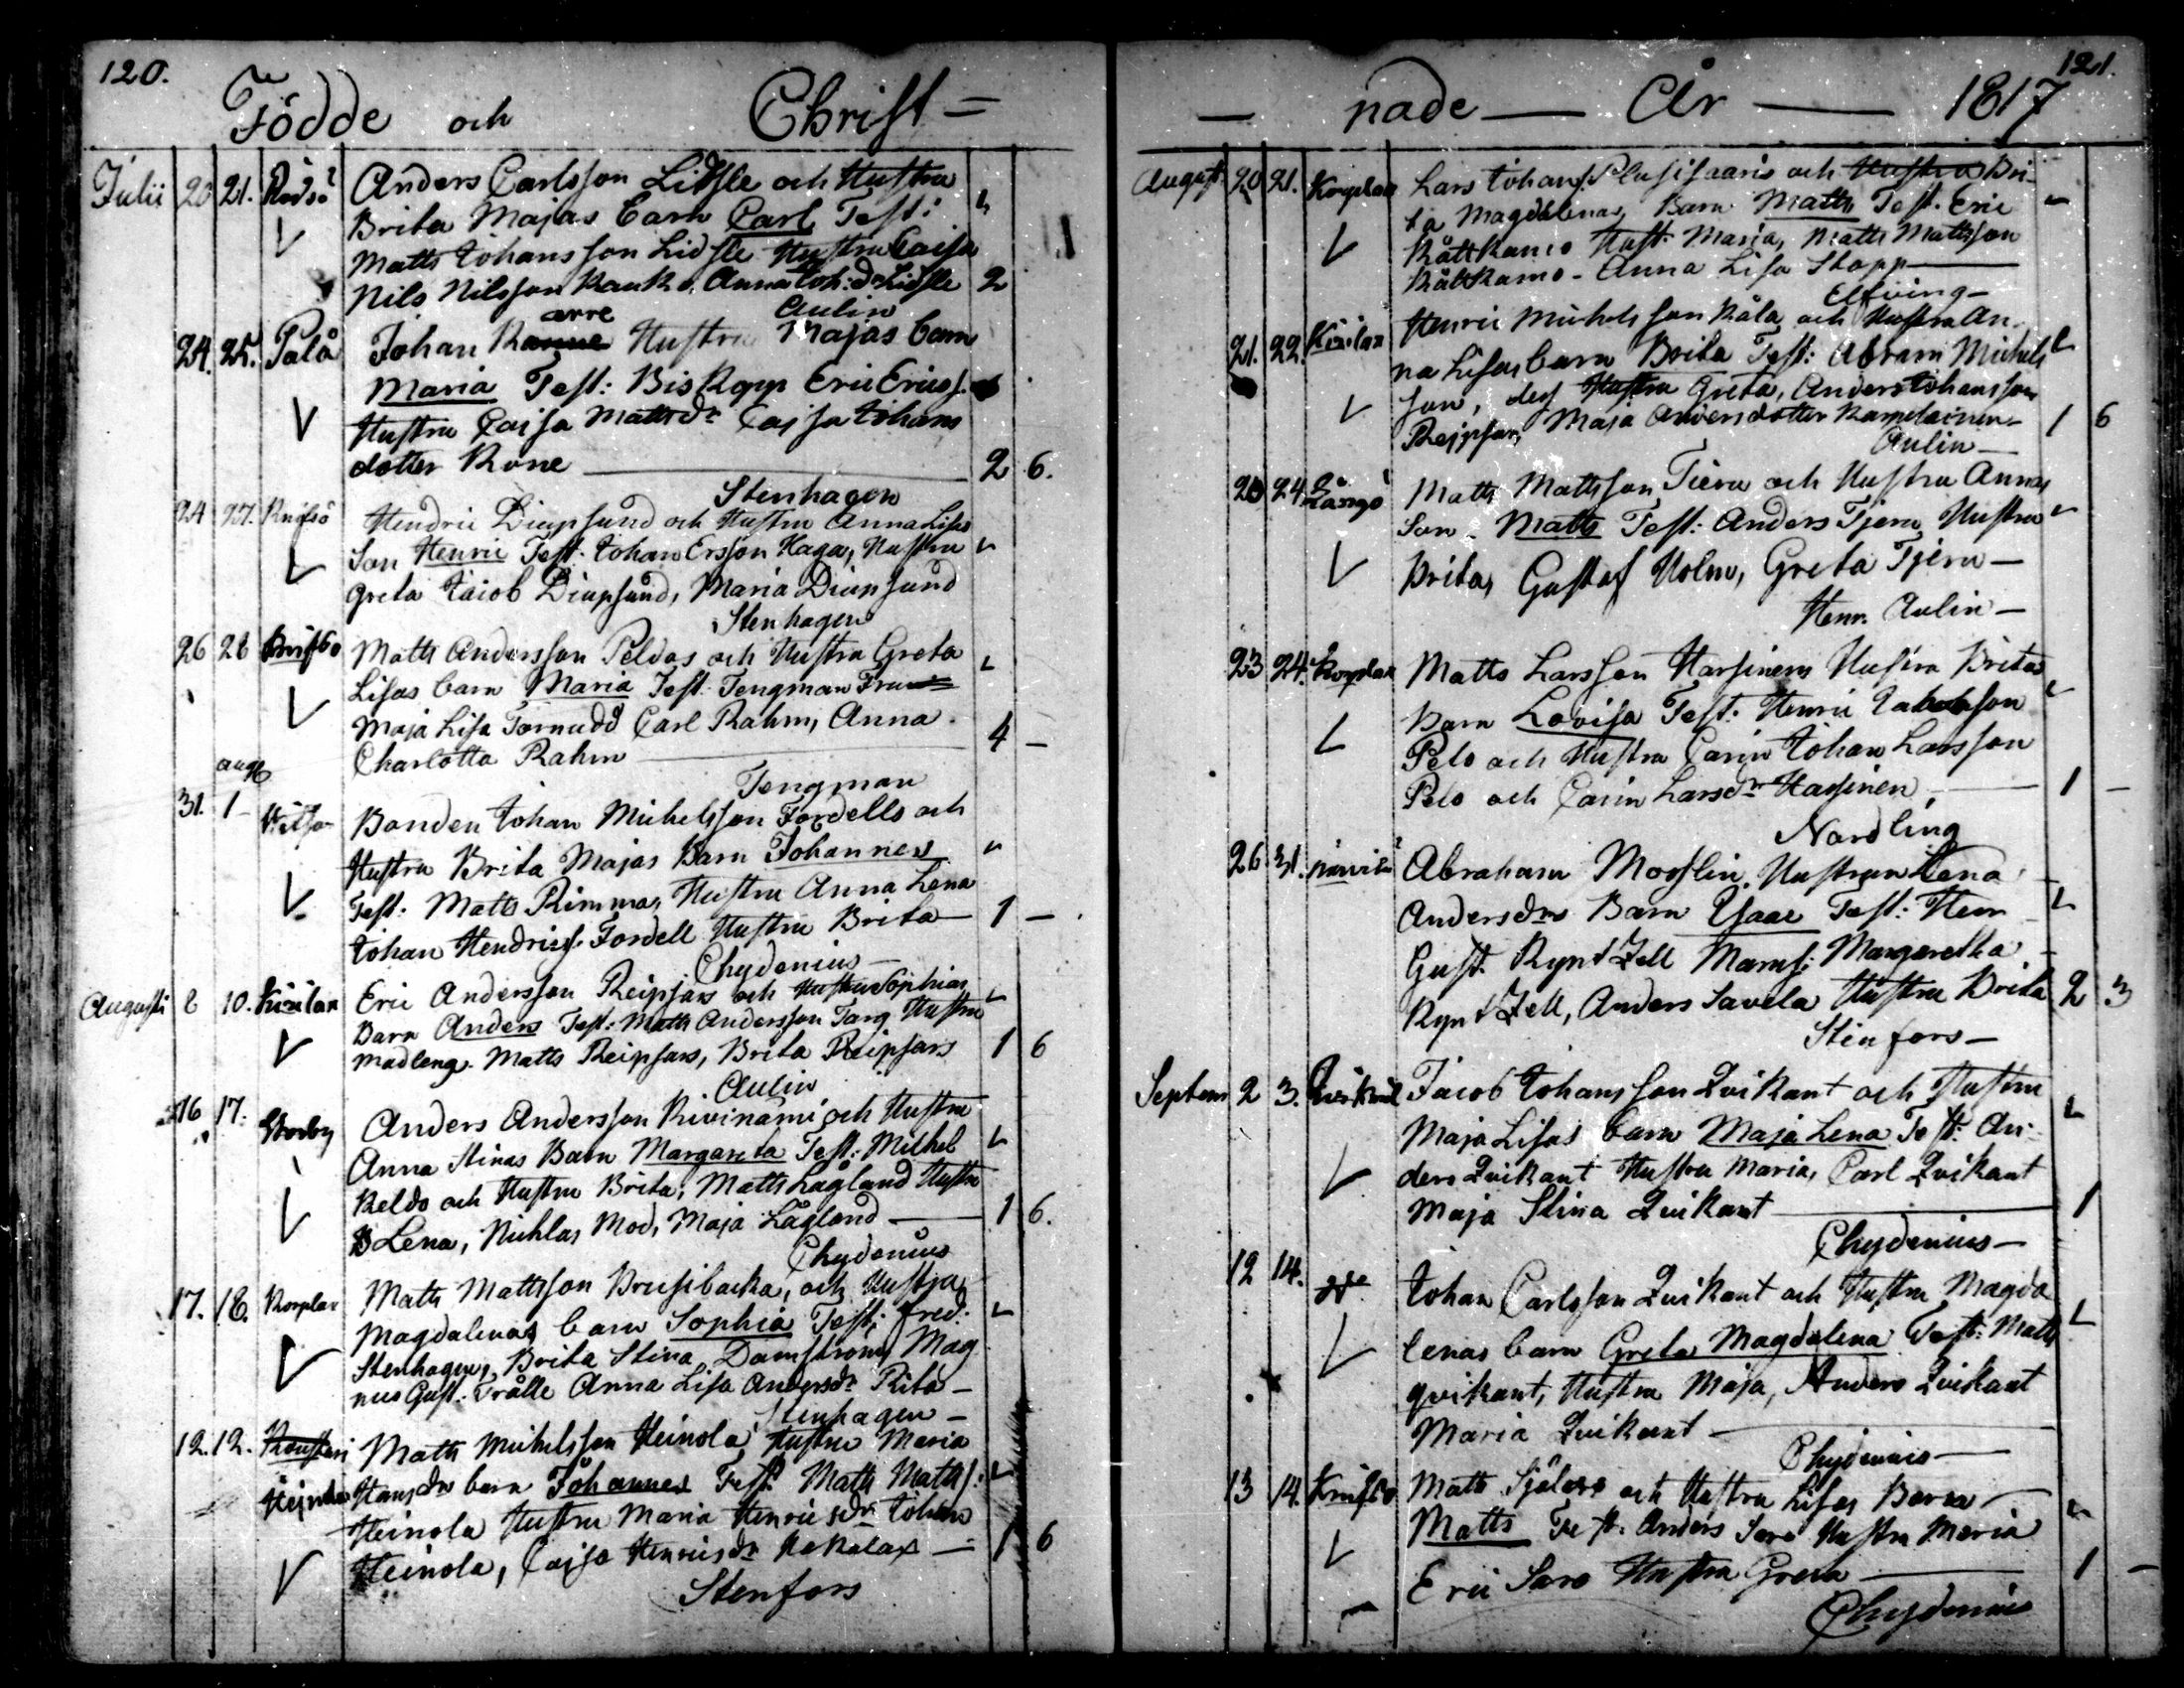 120.
Födde och Christ=
Julii 20 21. Rödsö Anders Carlsson Lidsle och Hustru
Brita Majas barn Carl Test:
Matts Johansson Lidsle Hustru Caisa
Nils Nilsson Kauko, Anna Joh: dr Lidsle 2
Aulin
24. 25. Palo Johan Kanne arre Hustru Majas barn
Maria Test: Biskopp Eric Ericss.
Hustru Caisa Mattsdr Caisa Johans
dotter Kone 2 6.
Stenhagen
24 27. Knifsö Hendric Diupsund och Hustru Anna Lisas
Son Henric Test: Johan Ersson Haga, Hustru
Greta Jacob Diupsund, Maria Diupsund
Stenhagen
26 28 Knifsö Matts Andersson Peldos och Hustru Greta
Lisas barn Maria Test: Tengman Fru
Maja Lisa Tornudd Carl Rahm, Anna
Charlotta Rahm 4 —
Tengman
aug
31. 1 — Bonden Johan Michelsson Fordells och
Hustru Brita Majas Barn Johannes
Test: Matts Rimma, Hustru Anna Lena
Johan Hendricss. Fordell Hustru Brita 1 —
Chydenius
Augusti 8 10. Kirilax Eric Andersson Reipsars och Hustru Sophias
Barn Anders Test: Matts Andersson Targ Hustru
Madlena. Matts Reipsars, Brita Reipsars 1 6
Aulin
16 17. Storby Anders Andersson Kivinämi och Hustru
Anna Stinas Barn Margareta Test: Michel
Keldo och Hustru Brita, Matts Lågland Hustru
B Lena, Nichlas Mod, Maja Lågland 1 6.
Chydenius
17. 18. Korplax Matts Mattsson Brusibacka, och Hustru
Magdalenas barn Sophia Test: Fred:
Stenhagen, Brita Stina Damström, Mag
nus Gust. Trålle Anna Lisa Andersdr Rita —
Stenhagen —
12. 12. Matts Michelsson Heinola Hustru Maria
Hansdr barn Johannes Test: Matts Mattss:
Heinola Hustru Maria Henricsdr Johan
Heinola, Caisa Henricsdr Kakalax — 1 6
Stenfors
121.
— nade — År — 1817
August 20 21. Korplax Lars Johanss. Plusisaaris och Hustru Bri-
ta Magdalenas Barn Matts Test. Eric
Råttkamo Hust: Maria, Matts Mattsson
Råttkamo — Anna Lisa Stapp
Elfving —
21. 22. Kirilax Henric Michelsson Råla och Hustru An
na Lisas barn Brita Test: Abram Michels
son, des Hustru Greta, Anders Johansson
Reipsar, Maja Andersdotter Kamelainen 1 6
Aulin —
20 24. Långö Matts Mattsson Tiera och Hustru Annas
Son — Matts Test: Anders Tjern Hustru
Brita, Gustaf Holm, Greta Tjern —
Henr. Aulin —
23 24. Korplax Matts Larsson Harsinens Hustru Britas
Barn Lovisa Test: Henric Jakobsson
Pelo och Hustru Carin Johan Larsson
Pelo och Carin Larsdr Harsinen 1 —
Nordling
26 31. Abraham Mosslin. Hustrun Lena
Andersdrs Barn Ysaac Test: Henr
Gust. Kyntzell Mams: Margaretha
Kyntzell, Anders Savela Hustru Brita 2 3
Stenfors —
Septem 2 3. Jacob Johansson Quikant och Hustru
Maja Lisas barn Maja Lena Test: An-
ders Quikant Hustru Maria, Carl Quikant
Maja Stina Quikant 1
Chydenius —
12 14. Johan Carlsson Quikant och Hustru Magda
lenas barn Greta Magdalena Test: Matts
Qvikant, Hustru Maja, Anders Quikant
Maria Quikant —
Chydenius —
13 14. Knifsö Matts Själös och Hustru Lisas Barn —
Matts Test. Anders Saro Hustru Maria
Eric Saro Hustru Greta 1 —
Chydenius